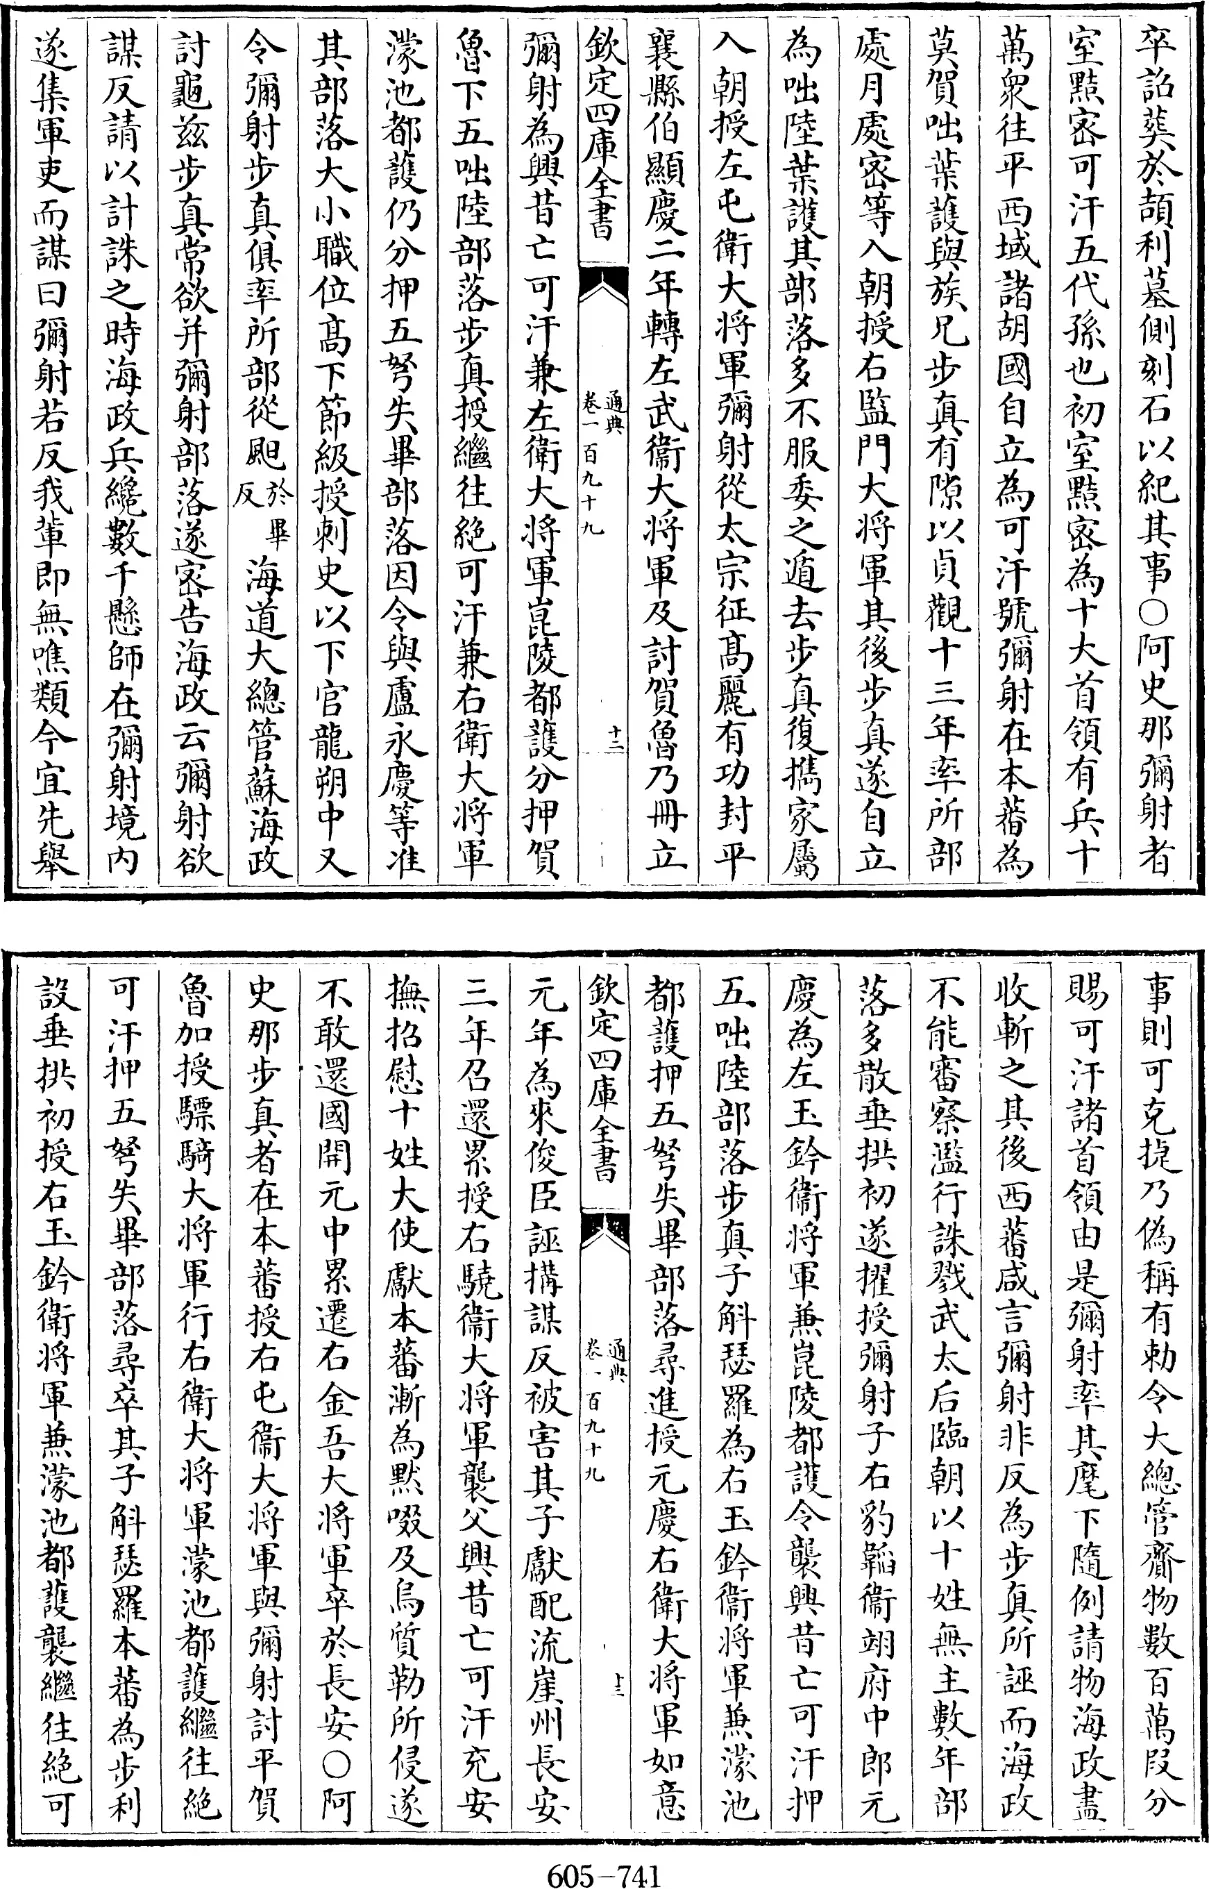 卒詔葬於頡利墓側刻石以紀其事○阿史那彌射者
室㸃密可汗五代孫也初室㸃密為十大首領有兵十
萬衆往平西域諸胡國自立為可汗號彌射在本蕃為
莫賀咄葉護與族兄步真有隙以貞觀十三年率所部
處月處密等入朝授右監門大將軍其後步真遂自立
為咄陸葉護其部落多不服委之遁去步真復攜家屬
入朝授左屯衛大將軍彌射從太宗征髙麗有功封平
襄縣伯顯慶二年轉左武衛大將軍及討賀魯乃冊立
欽定四庫全書
通典
卷一百九十九
十二
彌射為興昔亡可汗兼左衛大將軍崑陵都護分押賀
魯下五咄陸部落步真授繼往絶可汗兼右衛大將軍
濛池都護仍分押五弩失畢部落因令與盧永慶等准
其部落大小職位髙下節級授刺史以下官龍朔中又
令彌射步真俱率所部從䫻於畢反海道大總管蘇海政
討龜兹步真常欲并彌射部落遂密告海政云彌射欲
謀反請以計誅之時海政兵纔數千懸師在彌射境内
遂集軍吏而謀曰彌射若反我輩即無噍類今宜先舉
事則可克捷乃偽稱有勅令大總管齎物數百萬段分
賜可汗諸首領由是彌射率其麾下隨例請物海政盡
收斬之其後西蕃咸言彌射非反為步真所誣而海政
不能審察濫行誅戮武太后臨朝以十姓無主數年部
落多散垂拱初遂擢授彌射子右豹韜衛翊府中郎元
慶為左玉鈐衛將軍兼崑陵都護令襲興昔亡可汗押
五咄陸部落步真子斛瑟羅為右玉鈐衛將軍兼濛池
都護押五弩失畢部落尋進授元慶右衛大將軍如意
欽定四庫全書
通典
卷一百九十九
十三
元年為來俊臣誣搆謀反被害其子獻配流崖州長安
三年召還累授右驍衛大將軍襲父興昔亡可汗充安
撫招慰十姓大使獻本蕃漸為黙啜及烏質勒所侵遂
不敢還國開元中累遷右金吾大將軍卒於長安○阿
史那步真者在本蕃授右屯衛大將軍與彌射討平賀
魯加授驃騎大將軍行右衛大將軍濛池都護繼往絶
可汗押五弩失畢部落尋卒其子斛瑟羅本蕃為步利
設垂拱初授右玉鈐衛將軍兼濛池都護襲繼往絶可
605-741